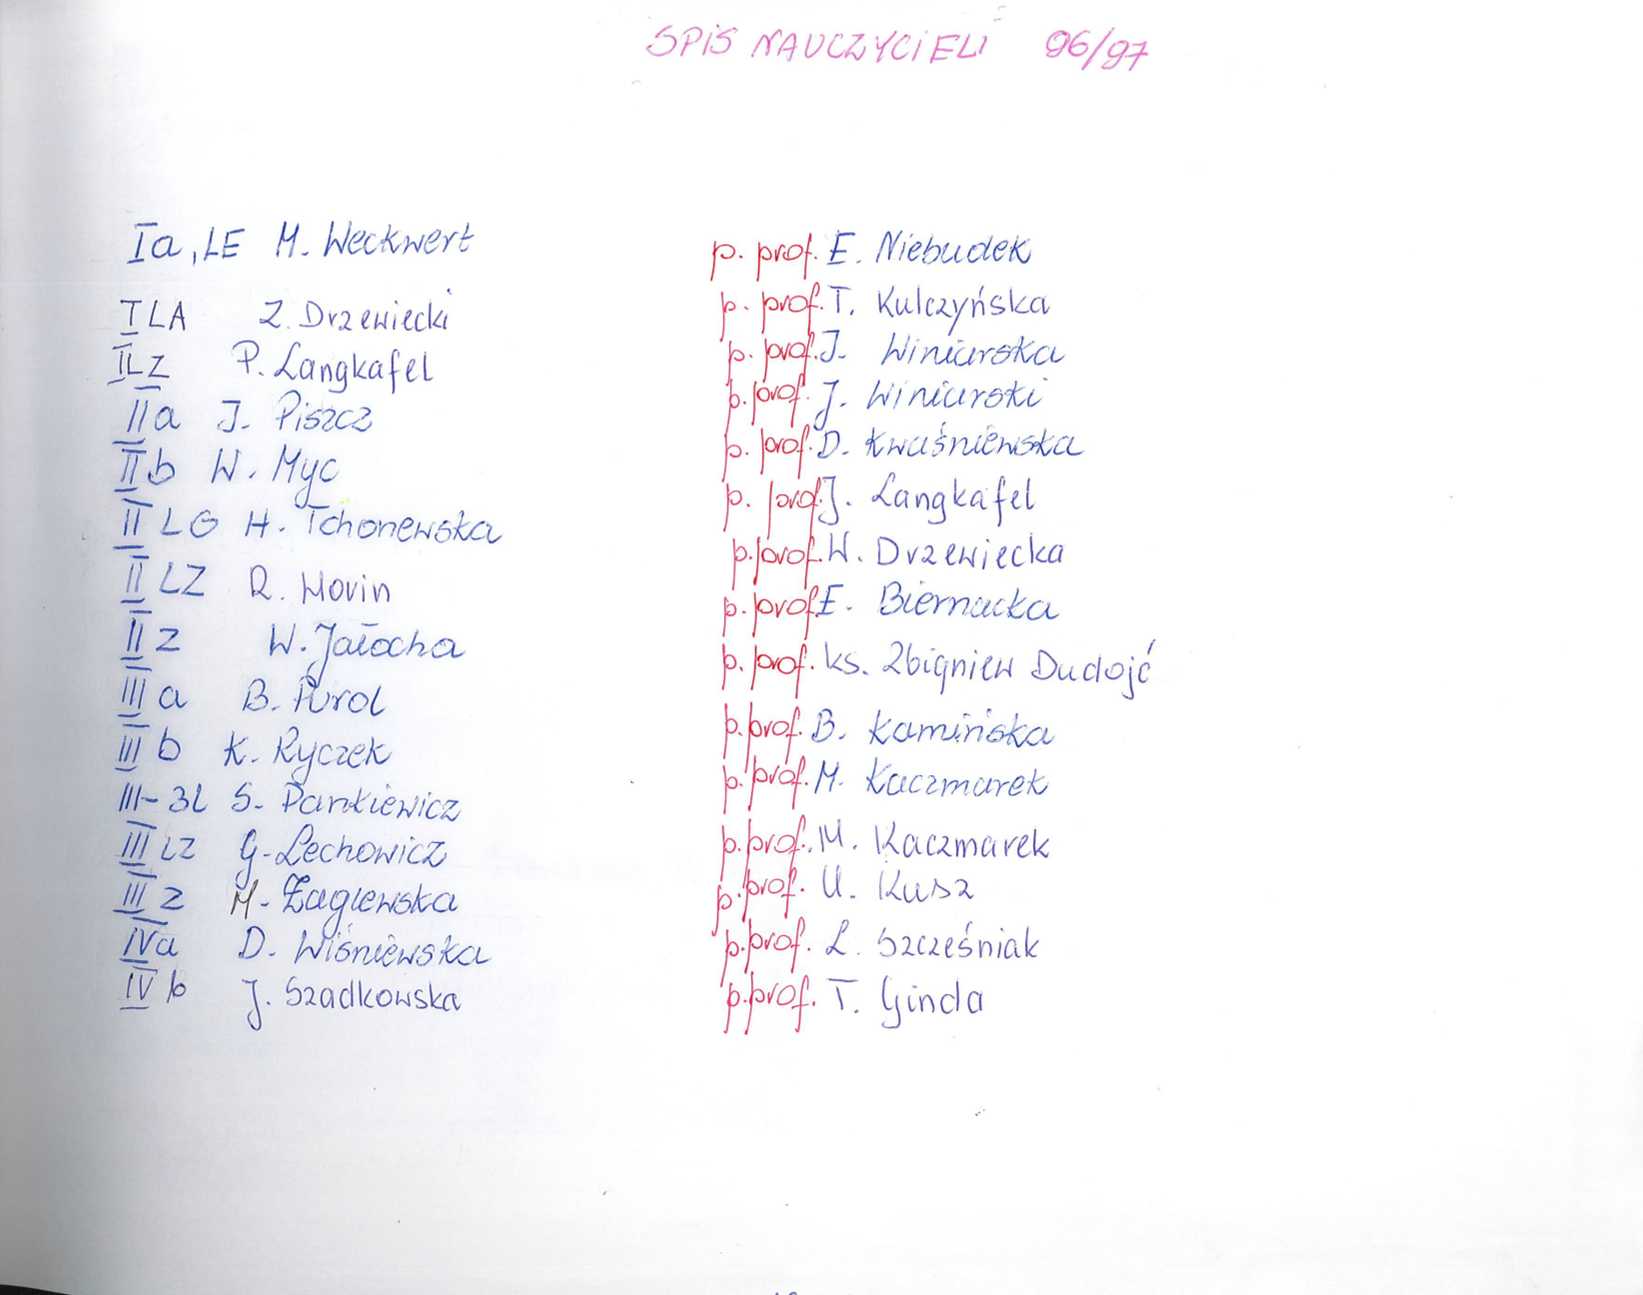 SPIS NAUCZYCIELI 96/97
Ia, LE M. Weckwert
I LA Z. Drzewiecki
ILZ P. Langkafel
IIa J. Piszcz
IIb W. Myc
II LG H. Tchorzewska
II LZ R. Morin
II z W. Jałocha
III a B. Purol
III b K. Ryczek
III-3L S. Pankiewicz
III LZ G. Lechowicz
III z M. Żaglewska
IVa D. Wiśniewska
IV b J. Szadkowska
p. prof. E. Niebudek
p. prof. T. Kulczyńska
p. prof. J. Winiarska
p. prof. J. Winiarski
p. prof. D. Kwaśniewska
p. prof. J. Langkafel
p. prof. W. Drzewiecka
p. prof. E. Biernacka
p. prof. ks. Zbigniew Dudojć
p. prof. B. Kamińska
p. prof. M. Kaczmarek
p. prof. M. Kaczmarek
p. prof. U. Kusz
p. prof. L. Szcześniak
p. prof. T. Ginda